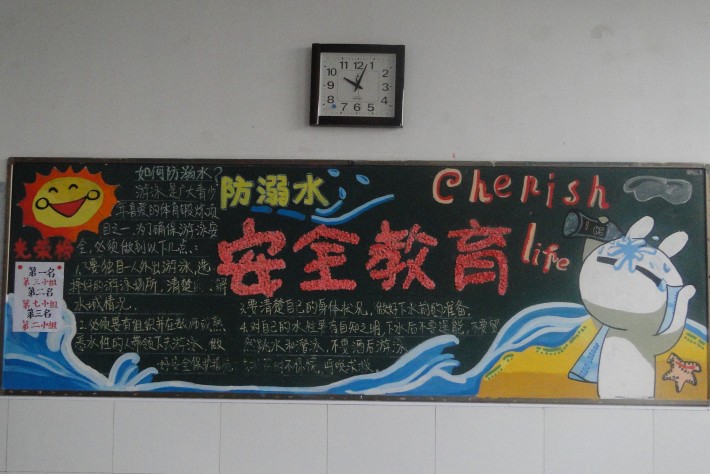 12 1 2 3 4 5 6 7 8 9 10 11
防溺水
Cherish
life
安全教育
光荣榜
第一名
第三小组
第二名
第七小组
第三名
第二小组
如何防溺水?
游泳是广大青少
年喜爱的体育锻炼项
目之一,为了确保游泳安
全,必须做到以下几点:
1.不要独自一人外出游泳,选
择好的游泳场所,清楚 解
水域情况。
2.必须要有组织并在老师或熟
悉水性的人带领下去游泳,做
好安全保护措施
3.要清楚自己的身体状况,做好下水前的准备.
4.对自己的水性要有自知之明,下水后不要逞能,不要贸
然跳水和潜泳,不要酒后游泳
不惊慌,呼唤求救.